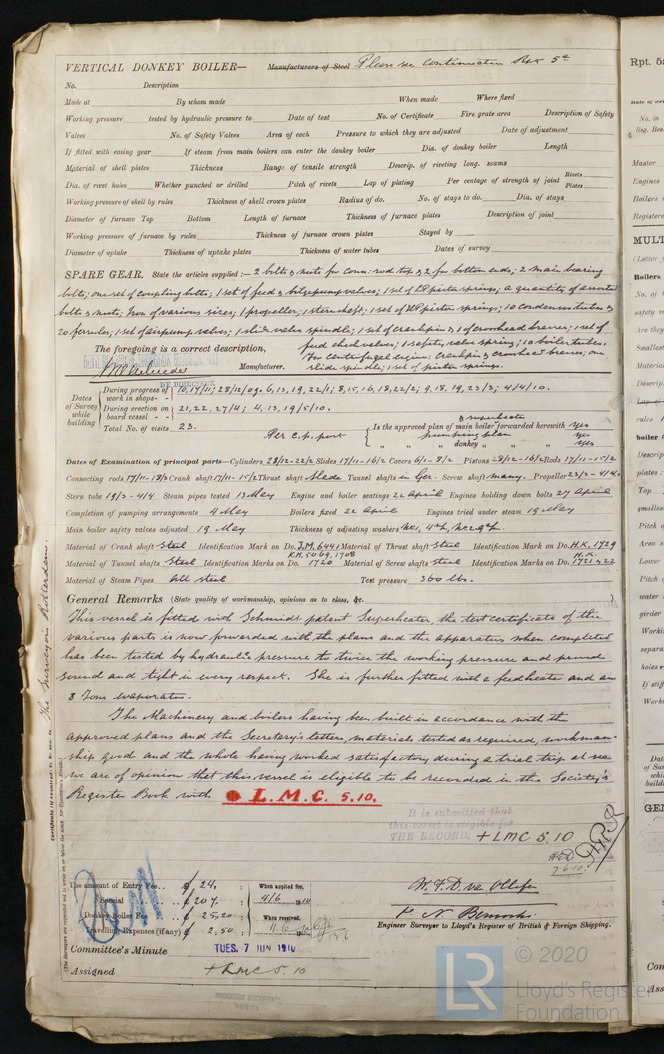 VERTICAL DONKEY BOILER— Manufacturers of Steel Please see Continuation Rpt 5a
No. Description
Made at By whom made When made Where fixed
Working pressure tested by hydraulic pressure to Date of test No. of Certificate Fire grate area Description of Safety
Valves No. of Safety Valves Area of each Pressure to which they are adjusted Date of adjustment
If fitted with easing gear If steam from main boilers can enter the donkey boiler Dia. of donkey boiler Length
Material of shell plates Thickness Range of tensile strength Descrip. of riveting long. seams
Dia. of rivet holes Whether punched or drilled Pitch of rivets Lap of plating Per centage of strength of joint Rivets Plates
Working pressure of shell by rules Thickness of shell crown plates Radius of do. No. of stays to do. Dia. of stays
Diameter of furnace Top Bottom Length of furnace Thickness of furnace plates Description of joint
Working pressure of furnace by rules Thickness of furnace crown plates Stayed by
Diameter of uptake Thickness of uptake plates Thickness of water tubes Dates of survey
SPARE GEAR. State the articles supplied:— 2 bolts & nuts for conn: rod top & 2 for bottom ends; 2 main bearing
bolts; one set of coupling bolts; 1 set of feed & bilgepump valves; 1 set of piston springs, a quantity of assorted
bolts & nuts; Iron of various sizes; 1 propeller; 1 sternshaft; 1 set of piston springs; 10 condensertubes &
20 ferrules; 1 set of airpump valves; 1 slide valve spindle; 1 set of crankpin & 1 of crosshead brasses; 1 set of
feed checkvalves; 1 safety valve spring; 10 boilertubes.
The foregoing is a correct description,
For centrifugal engine: Crankpin & crosshead brasses; one
slide spindle; 1 set of piston springs.
Manufacturer.
DE DIRECTEUR
Dates of Survey while building
During progress of work in shops- - 10, 17/11; 28/12/09. 6, 13, 19, 22/1; 8, 15, 16, 18, 22/2; 9, 18, 19, 23/3; 4/4/10.
During erection on board vessel - - 21, 22, 27/4; 4, 13, 19/5/10.
Total No. of visits 23.
Per C.p. post
Is the approved plan of main boiler forwarded herewith yes
& superheater
pumping plan yes
" " " donkey " " " yes
Dates of Examination of principal parts—Cylinders 28/12-22/2 Slides 17/11-16/2 Covers 6/1-8/2 Pistons 28/12-16/2 Rods 17/11-15/2
Connecting rods 17/11-18/3 Crank shaft 17/11-15/2 Thrust shaft Made Tunnel shafts in Ger- Screw shaft many. Propeller 23/3-4/4
Stern tube 19/3-4/4 Steam pipes tested 13 May Engine and boiler seatings 22 April Engines holding down bolts 27 April
Completion of pumping arrangements 4 May Boilers fixed 22 April Engines tried under steam 19 May
Main boiler safety valves adjusted 19 May Thickness of adjusting washers
Material of Crank shaft Steel Identification Mark on Do. J.M. 6441 Material of Thrust shaft Steel Identification Mark on Do. H.K. 1729
K.M. 5069, 1708 H.K.
Material of Tunnel shafts Steel Identification Marks on Do. 1720 Material of Screw shafts Steel Identification Marks on Do. 1721 & 22
Material of Steam Pipes all steel Test pressure 360 lbs.
General Remarks (State quality of workmanship, opinions as to class, &c.
This vessel is fitted with Schmidt patent Superheater, the test certificate of the
various parts is now forwarded with the plans and the apparatus when completed
has been tested by hydraulic pressure to twice the working pressure and proved
sound and tight in every respect. She is further fitted with a feedheater and an
8 Tons evaporator.
The Machinery and boilers having been built in accordance with the
approved plans and the Secretary's letters, materials tested as required, workman-
ship good and the whole having worked satisfactory during a trial trip at sea
we are of opinion that this vessel is eligible to be recorded in the Society's
Register Book with + L.M.C. 5.10.
It is submitted that
this vessel is eligible for
THE RECORD. + LMC 5.10
7.6.10
The amount of Entry Fee.. £ 24. : When applied for,
Special £ 207. : 4/6 1910
Donkey Boiler Fee £ 25.20 : When received,
Travelling Expenses (if any) £ 2.50 : 11.6 1910
Engineer Surveyor to Lloyd's Register of British & Foreign Shipping.
Committee's Minute TUES. 7 JUN 1910
Assigned + LMC 5.10
The Surveyors Rotterdam.
(The Surveyors are requested not to write on or below the space for Committee's Minute.)
© 2020
LR
Lloyd's Register
Foundation
Rpt. 5a
No. in
Reg. Boo
Master
Engines
Boilers
Registere
MULT
(Letter
Boilers
No. of
safety v
Are they
Smallest
Material
Descrip.
Lap of
rules
boiler
Descrip
plates
Top
smallest
Pitch o
Area o
Lower
Pitch
water
girder
Worki
separa
holes
If stif
Work
GEN
Com
Ass